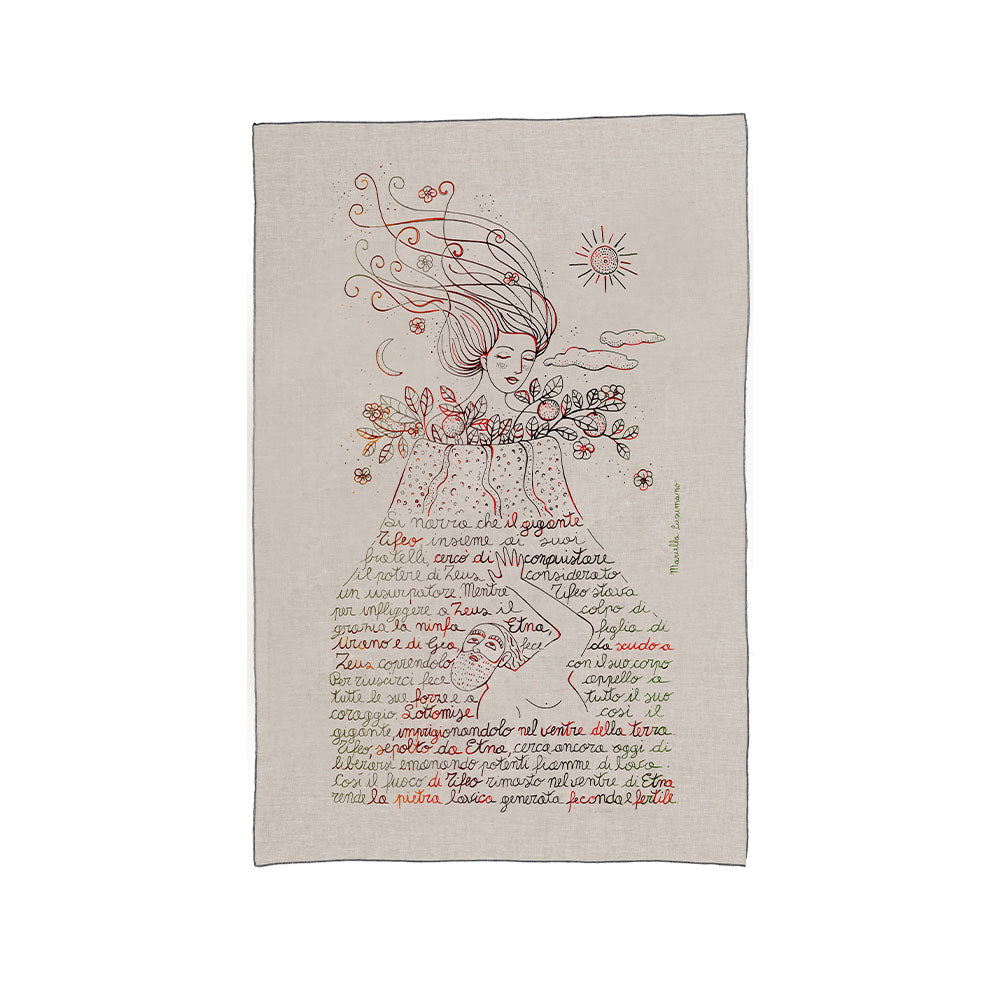 Si narra che il gigante
Tifeo, insieme ai suoi
fratelli, cercò di conquistare
il potere di Zeus considerato
un usurpatore. Mentre Tifeo stava
per infliggere a Zeus il colpo di
grazia la ninfa Etna, figlia di
Urano e di Gea, fece da scudo a
Zeus coprendolo con il suo corpo
Per riuscirci fece appello a
tutte le sue forze e a tutto il suo
coraggio. Sottomise così il
gigante, imprigionandolo nel ventre della terra.
Tifeo, sepolto da Etna, cerca ancora oggi di
liberarsi emanando potenti fiamme di lava.
Così il fuoco di Tifeo rimasto nel ventre di Etna
rende la pietra lavica generata feconda e fertile.
Marcella Cusumano